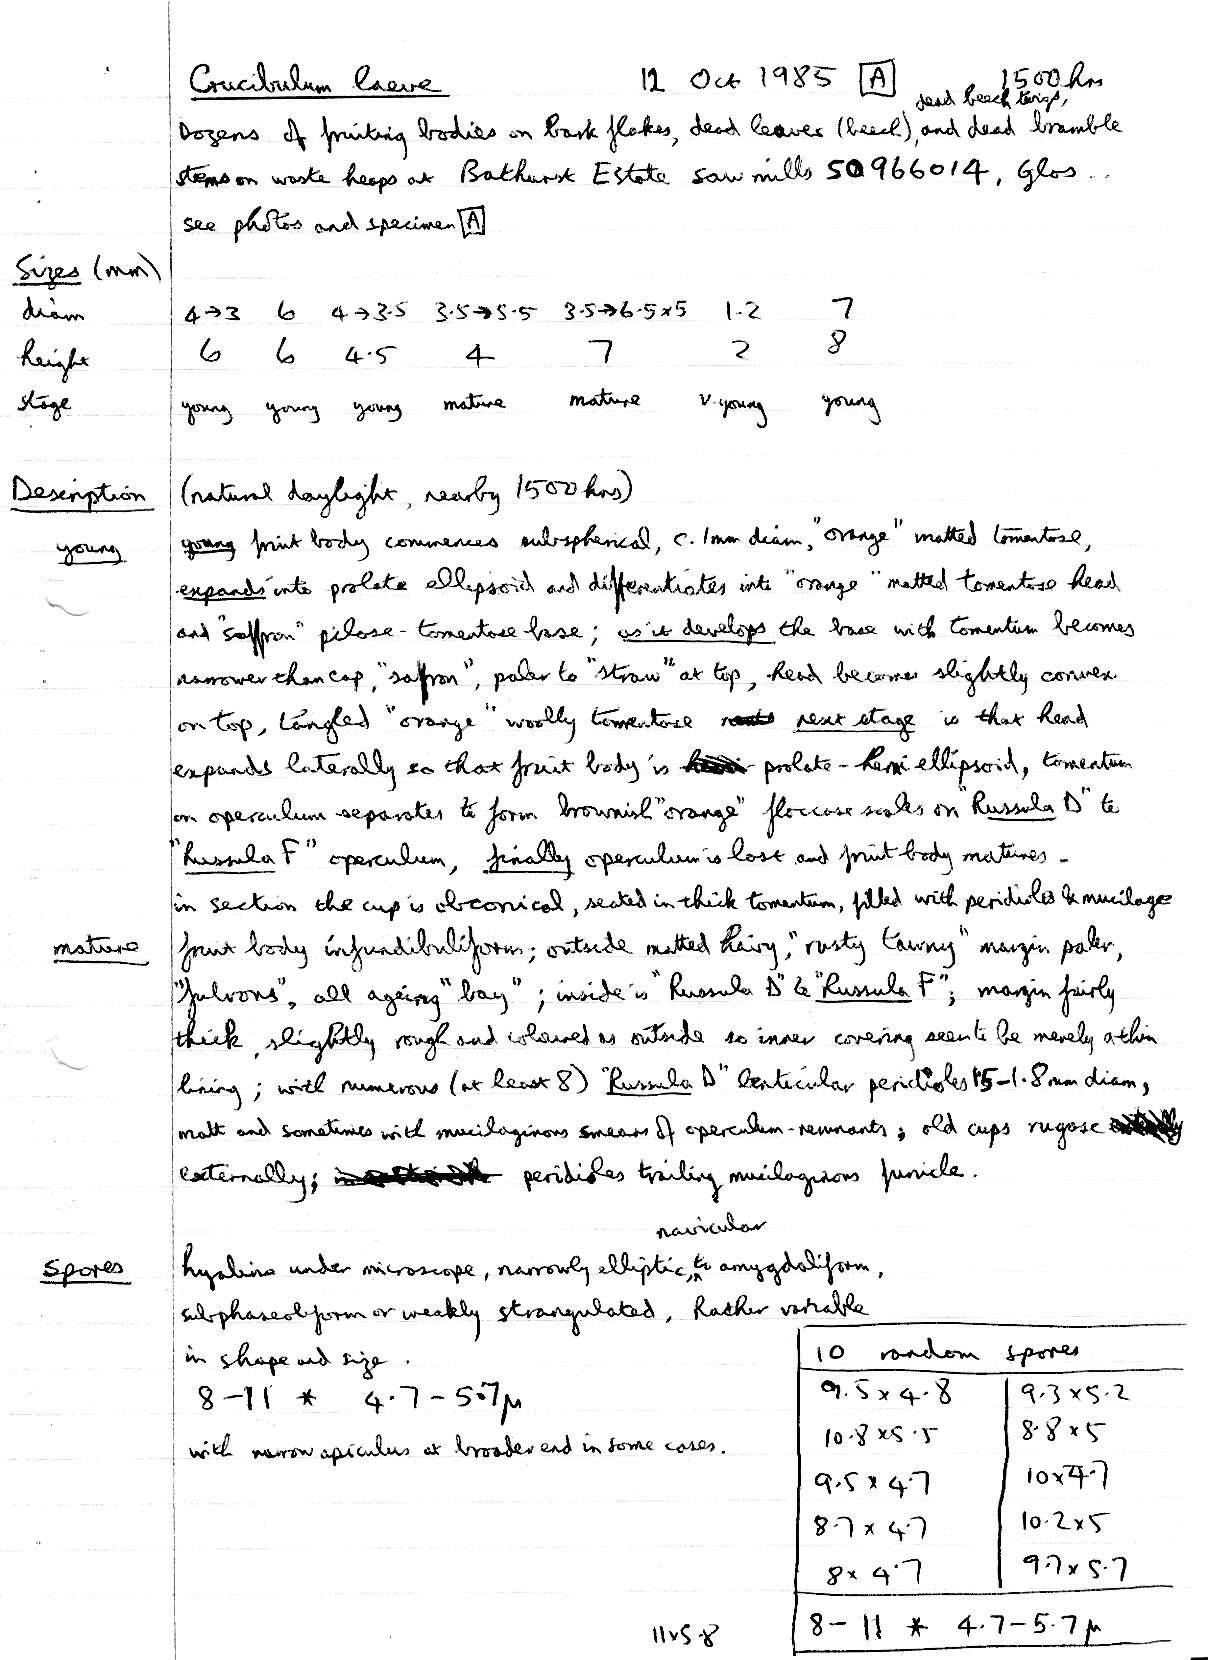 Crucibulum laeve 12 Oct 1985 [A] 1500 hrs
dead beech twigs,
Dozens of fruiting bodies on bark flakes, dead leaves (beech), and dead bramble
stems on waste heaps at Bathurst Estate saw mills SO966014, Glos...
see photos and specimen [A]
Sizes (mm)
diam 4→3 6 4→3.5 3.5→5.5 3.5→6.5x5 1.2 7
height 6 6 4.5 4 7 2 8
stage young young young mature mature v.young young
Description (natural daylight, nearby 1500 hrs)
young young fruit body commences subspherical, c. 1mm diam, "orange" matted tomentose,
expands into prolate ellipsoid and differentiates into "orange" matted tomentose head
and "saffron" pilose-tomentose base; as it develops the base with tomentum becomes
narrower than cap, "saffron", paler to "straw" at top, head becomes slightly convex
on top, tangled "orange" woolly tomentose next stage is that head
expands laterally so that fruit body is prolate-hemi ellipsoid, tomentum
on operculum separates to form brownish "orange" floccose scales on "Russula D" to
"Russula F" operculum, finally operculum is lost and fruit body matures -
in section the cup is obconical, seated in thick tomentum, filled with peridioles & mucilage
mature fruit body infundibuliform; outside matted hairy, "rusty tawny" margin paler,
"fulvous", all ageing "bay"; inside is "Russula D" to "Russula F"; margin fairly
thick, slightly rough and coloured as outside so inner covering seen to be merely a thin
lining; with numerous (at least 8) "Russula D" lenticular peridioles 1.5-1.8mm diam,
matt and sometimes with mucilaginous smears of operculum-remnants; old cups rugose
externally; peridioles trailing mucilaginous funicle.
navicular
Spores hyaline under microscope, narrowly elliptic, to amygdaliform,
subphaseoliform or weakly strangulated, Rather variable
in shape and size.
10 random spores
8-11 * 4.7-5.7μ
9.5 x 4.8 9.3 x 5.2
10.8 x 5.5 8.8 x 5
with narrow apiculus at broader end in some cases.
9.5 x 4.7 10 x 4.7
8.7 x 4.7 10.2 x 5
8 x 4.7 9.7 x 5.7
11x5.8 8-11 * 4.7-5.7μ